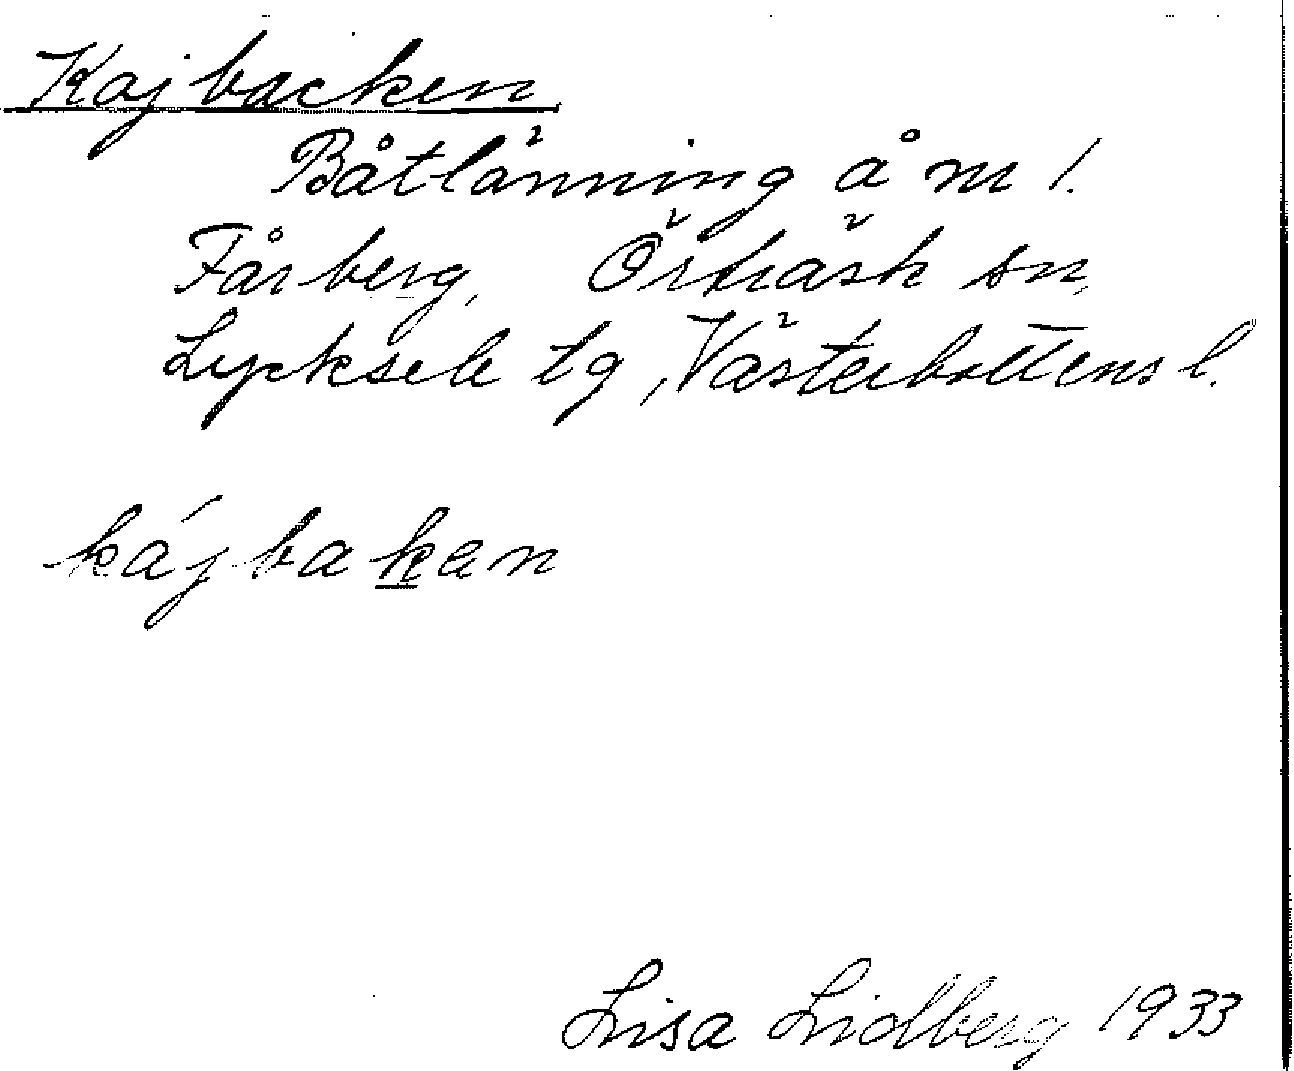 Kajbacken
Båtlänning å m 1.
Fårberg, Örträsk sn,
Lycksele tg, Västerbottens l.
kájbakan
Lisa Lidberg 1933